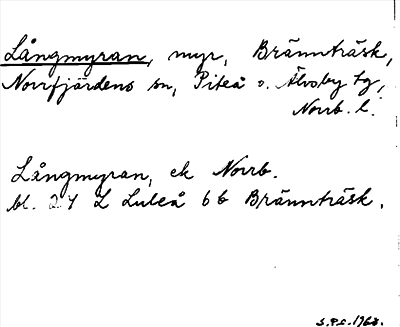 Långmyran, myr, Brännträsk,
Norrfjärdens sn, Piteå o. Älvsby tg,
Norrb. l.
Långmyran, ek Norrb.
bl. 24 L Luleå 6b Brännträsk.
S.P.C. 1968.